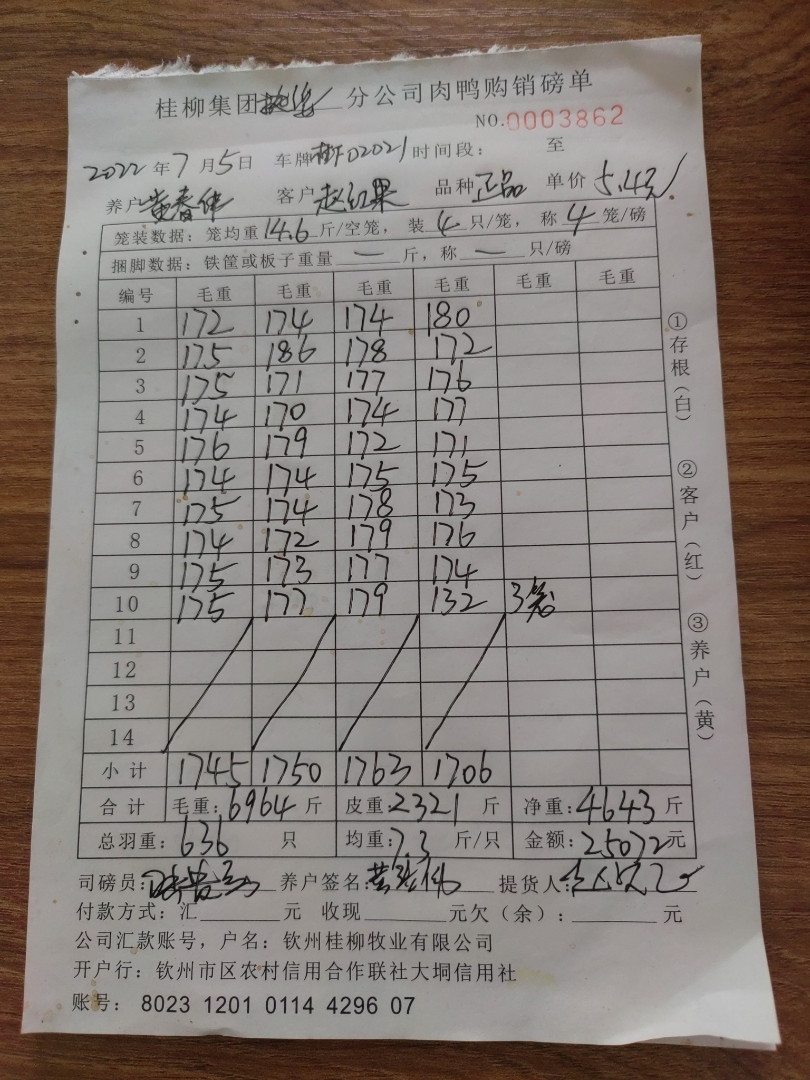 桂柳集团 分公司肉鸭购销磅单
NO.0003862
2022年7月5日 车牌 D02021 时间段： 至
养户 黄春伟 客户 赵红果 品种 正品 单价 5.4元
笼装数据：笼均重14.6斤/空笼，装4只/笼，称4笼/磅
捆脚数据：铁筐或板子重量 — 斤，称 — 只/磅
编号 毛重 毛重 毛重 毛重 毛重 毛重
1 172 174 174 180
2 175 186 178 172
3 175 171 177 176
4 174 170 174 177
5 176 179 172 171
6 174 174 175 175
7 175 174 178 173
8 174 172 179 176
9 175 173 177 174
10 175 177 179 132 3笼
11
12
13
14
小计 1745 1750 1763 1706
合计 毛重：6964斤 皮重：2321斤 净重：4643斤
总羽重：636只 均重：7.3斤/只 金额：25072元
司磅员： 养户签名： 提货人：
付款方式：汇 元 收现 元欠（余）： 元
公司汇款账号，户名：钦州桂柳牧业有限公司
开户行：钦州市区农村信用合作联社大垌信用社
账号： 8023 1201 0114 4296 07
①存根（白）
②客户（红）
③养户（黄）